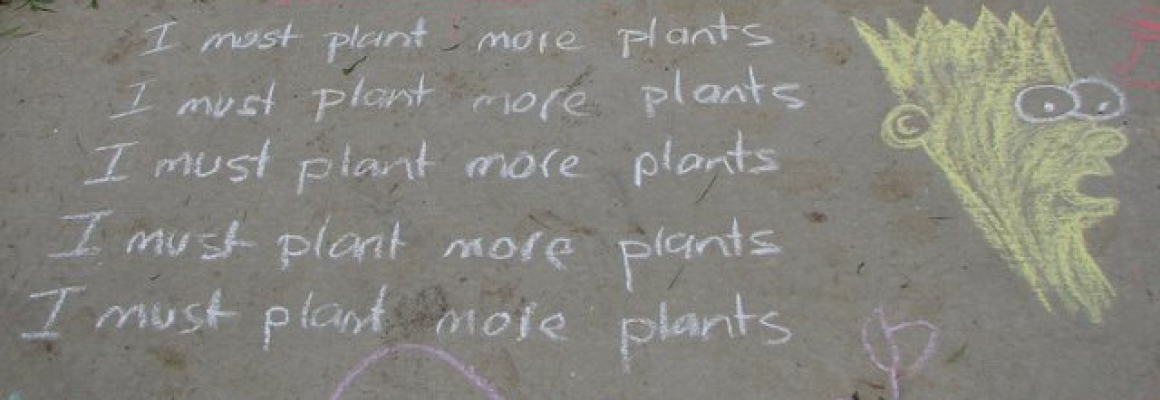 I must plant more plants
I must plant more plants
I must plant more plants
I must plant more plants
I must plant more plants